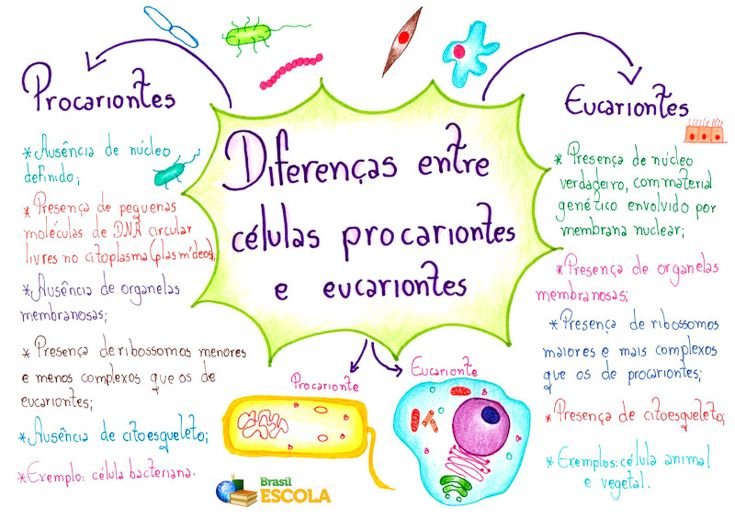 Procariontes
*Ausência de núcleo
definido;
*Presença de pequenas
moléculas de DNA circular
livres no citoplasma (plasmídeos);
*Ausência de organelas
membranosas;
*Presença de ribossomos menores
e menos complexos que os de
eucariontes;
*Ausência de citoesqueleto;
*Exemplo: célula bacteriana.
Diferenças entre
células procariontes
e eucariontes
Procarionte
Eucarionte
Brasil
ESCOLA
Eucariontes
*Presença de núcleo
verdadeiro, com material
genético envolvido por
membrana nuclear;
*Presença de organelas
membranosas;
*Presença de ribossomos
maiores e mais complexos
que os de procariontes;
*Presença de citoesqueleto;
*Exemplos: célula animal
e vegetal.